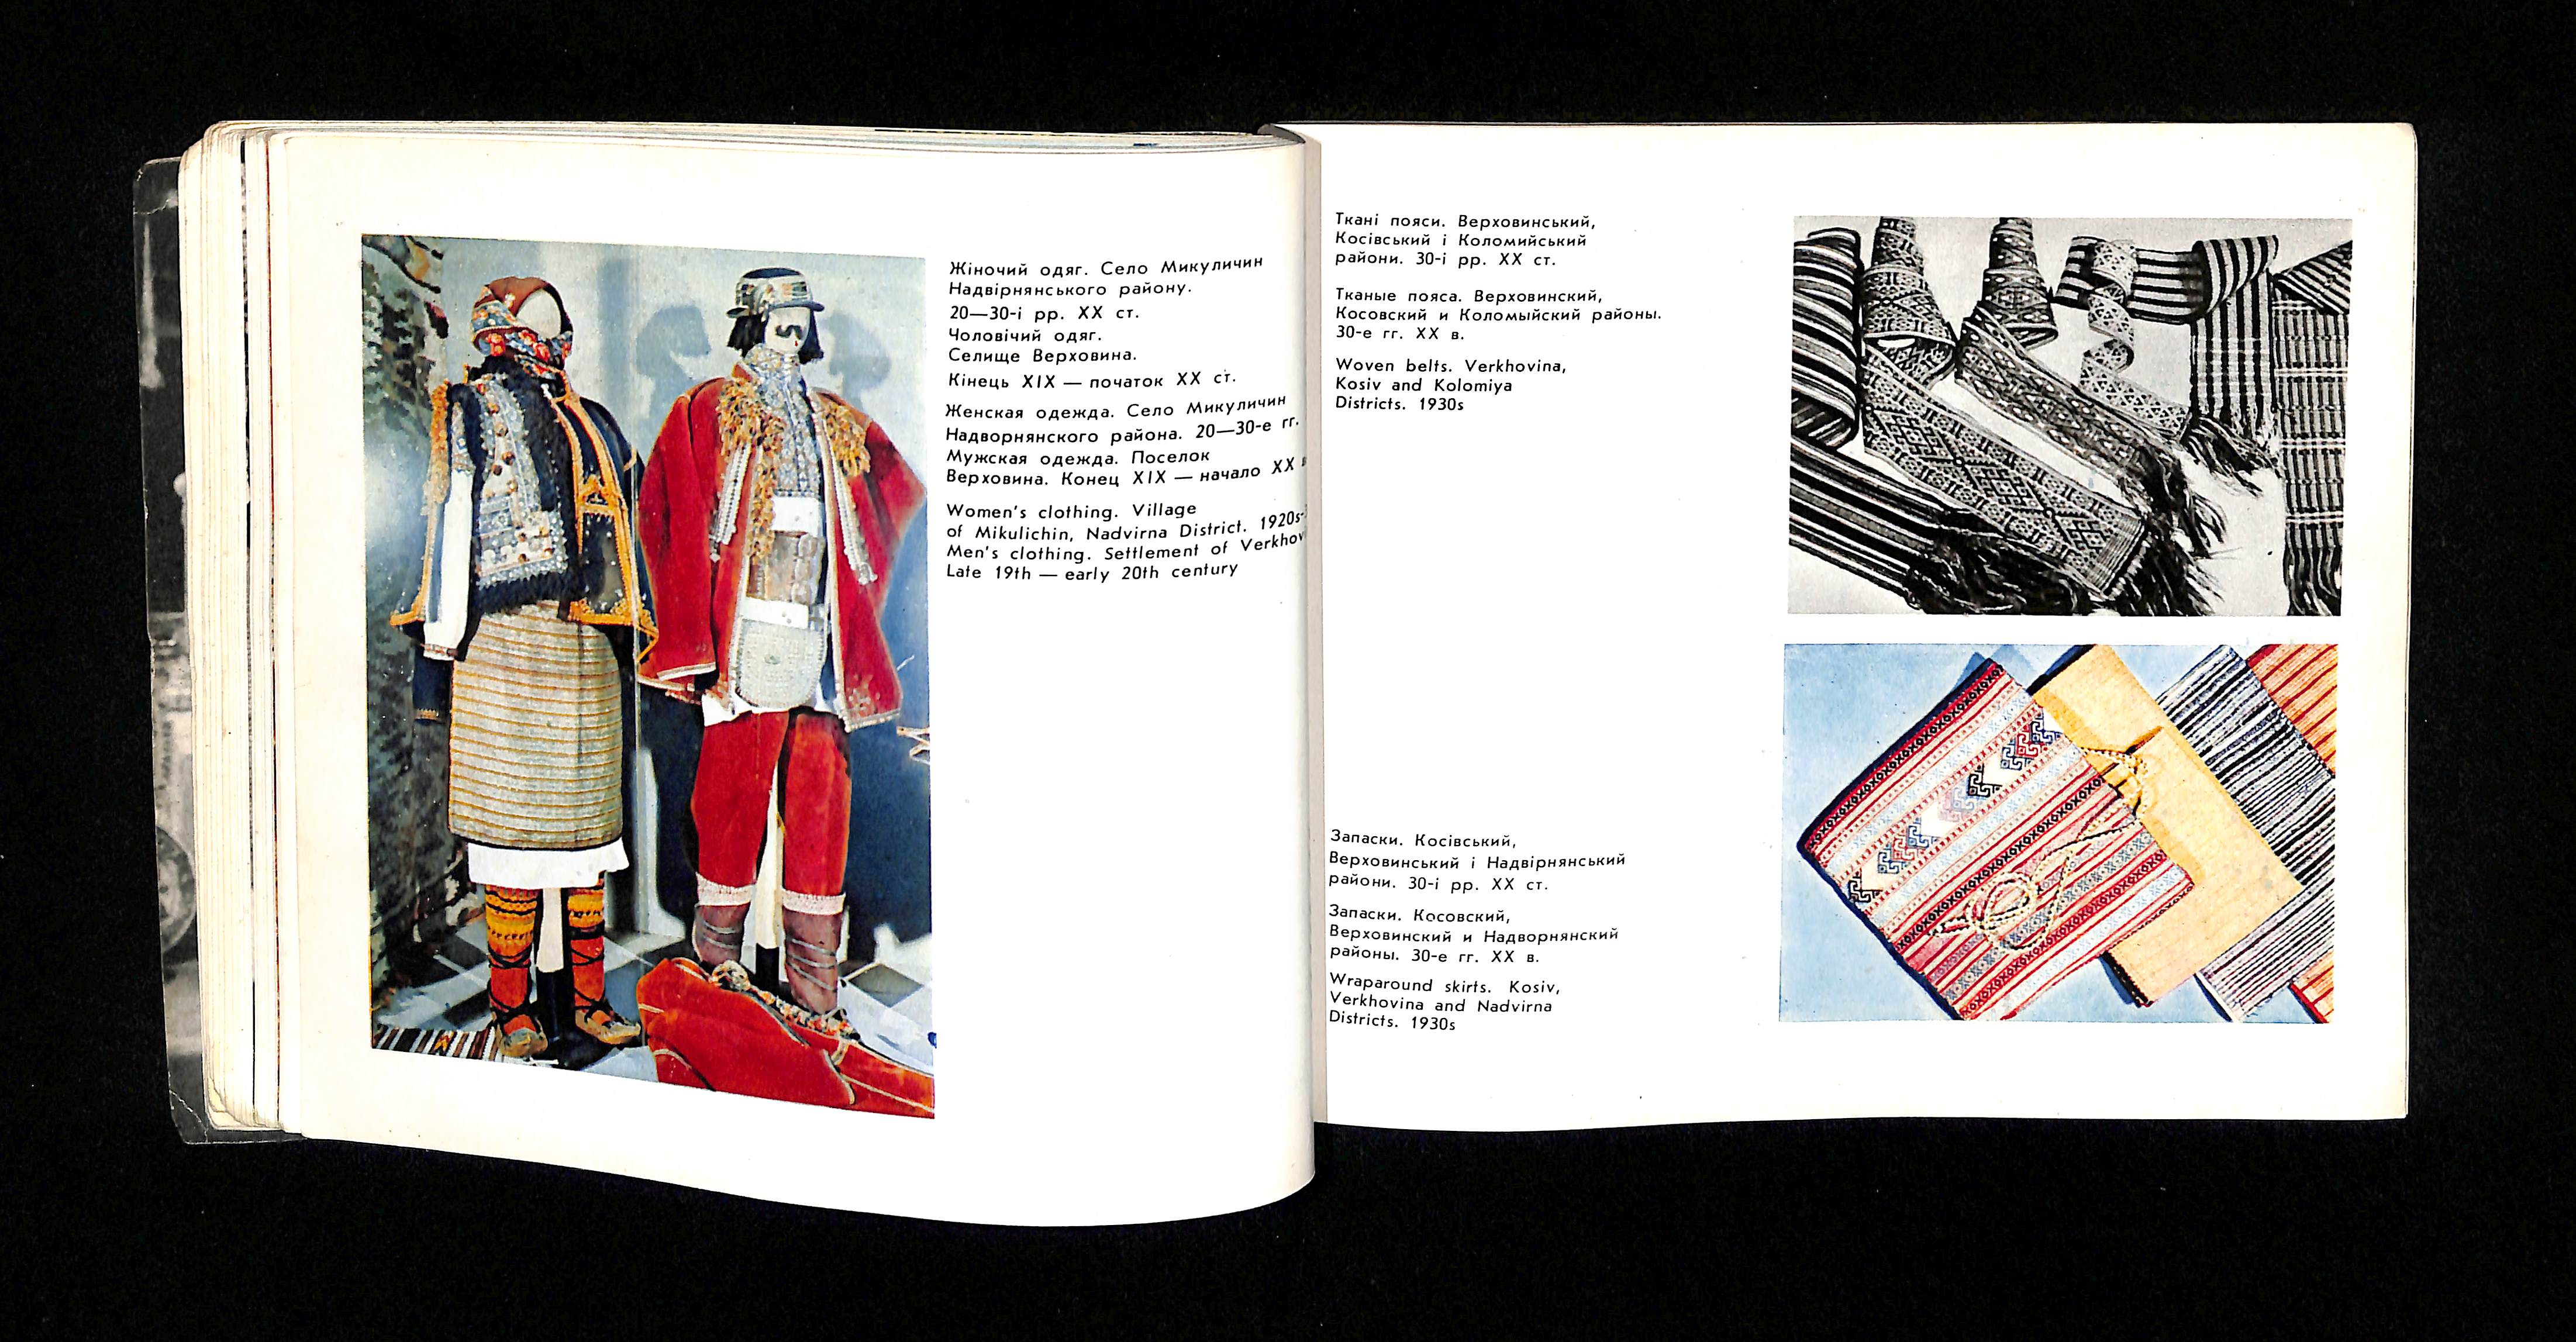 Жіночий одяг. Село Микуличин
Надвірнянського району.
20—30-і рр. XX ст.
Чоловічий одяг.
Селище Верховина.
Кінець XIX — початок XX ст.
Женская одежда. Село Микуличин
Надворнянского района. 20—30-е гг.
Мужская одежда. Поселок
Верховина. Конец XIX — начало XX
Women's clothing. Village
of Mikulichin, Nadvirna District. 1920s-
Men's clothing. Settlement of
Late 19th — early 20th century
Ткані пояси. Верховинський,
Косівський і Коломийський
райони. 30-і рр. XX ст.
Тканые пояса. Верховинский,
Косовский и Коломыйский районы.
30-е гг. XX в.
Woven belts. Verkhovina,
Kosiv and Kolomiya
Districts. 1930s
Запаски. Косівський,
Верховинський і Надвірнянський
райони. 30-і рр. XX ст.
Запаски. Косовский,
Верховинский и Надворнянский
районы. 30-е гг. XX в.
Wraparound skirts. Kosiv,
Verkhovina and Nadvirna
Districts. 1930s